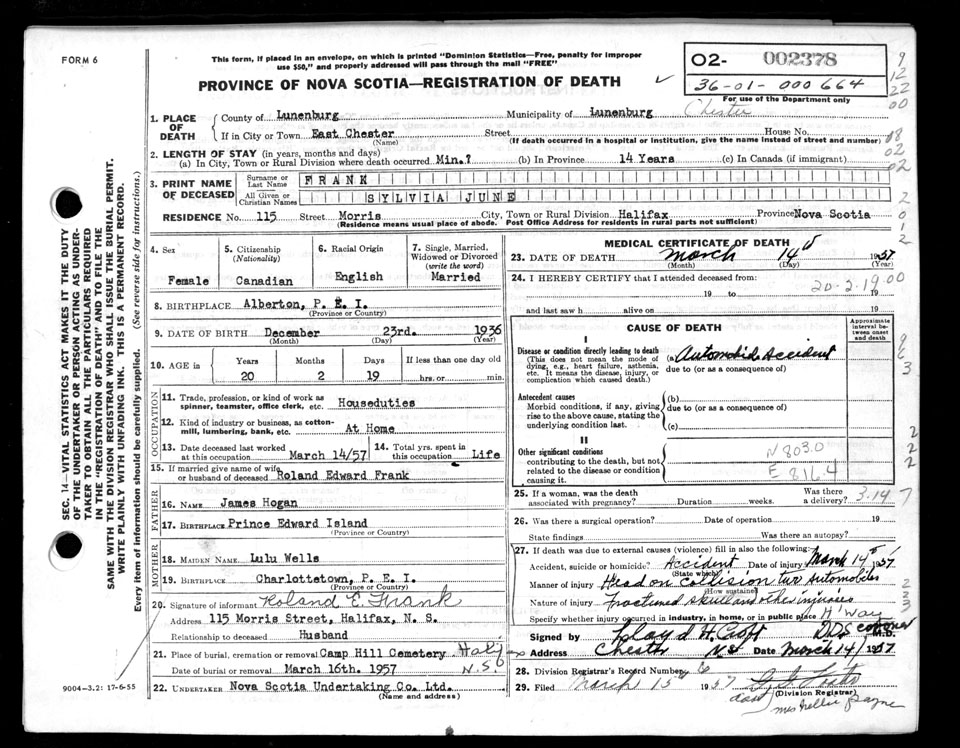 FORM 6
This form, if placed in an envelope, on which is printed "Dominion Statistics—Free, penalty for improper
use $50," and properly addressed will pass through the mail "FREE"
PROVINCE OF NOVA SCOTIA—REGISTRATION OF DEATH
02- 002378
36-01-000664
For use of the Department only
Chester
9
12
22
00
18
02
02
2
0
1
2
SEC. 14—VITAL STATISTICS ACT MAKES IT THE DUTY
OF THE UNDERTAKER OR PERSON ACTING AS UNDER-
TAKER TO OBTAIN ALL THE PARTICULARS REQUIRED
IN THE "REGISTRATION OF DEATH" AND TO FILE THE
SAME WITH THE DIVISION REGISTRAR WHO SHALL ISSUE THE BURIAL PERMIT.
WRITE PLAINLY WITH UNFADING INK. THIS IS A PERMANENT RECORD.
Every item of information should be carefully supplied. (See reverse side for instructions.)
1. PLACE OF DEATH County of Lunenburg Municipality of Lunenburg
If in City or Town East Chester Street House No.
(Name) (If death occurred in a hospital or institution, give the name instead of street and number)
2. LENGTH OF STAY (in years, months and days)
(a) In City, Town or Rural Division where death occurred Min.? (b) In Province 14 Years (c) In Canada (if immigrant)
3. PRINT NAME OF DECEASED Surname or Last Name FRANK
All Given or Christian Names SYLVIA JUNE
RESIDENCE No. 115 Street Morris City, Town or Rural Division Halifax Province Nova Scotia
(Residence means usual place of abode. Post Office Address for residents in rural parts not sufficient)
4. Sex 5. Citizenship (Nationality) 6. Racial Origin 7. Single, Married, Widowed or Divorced (write the word)
Female Canadian English Married
8. BIRTHPLACE Alberton, P. E. I.
(Province or Country)
9. DATE OF BIRTH December 23rd. 1936
(Month) (Day) (Year)
10. AGE in Years Months Days If less than one day old
20 2 19 hrs. or min.
OCCUPATION
11. Trade, profession, or kind of work as
spinner, teamster, office clerk, etc. Houseduties
12. Kind of industry or business, as cotton-
mill, lumbering, bank, etc. At Home
13. Date deceased last worked
at this occupation March 14/57
14. Total yrs. spent in
this occupation Life
15. If married give name of wife
or husband of deceased Roland Edward Frank
FATHER
16. NAME James Hogan
17. BIRTHPLACE Prince Edward Island
(Province or Country)
MOTHER
18. MAIDEN NAME Lulu Wells
19. BIRTHPLACE Charlottetown, P. E. I.
(Province or Country)
20. Signature of informant Roland E Frank
Address 115 Morris Street, Halifax, N. S.
Relationship to deceased Husband
21. Place of burial, cremation or removal Camp Hill Cemetery
Date of burial or removal March 16th. 1957 N.S.
22. UNDERTAKER Nova Scotia Undertaking Co. Ltd.
(Name and address)
9004-3.2: 17-6-55
MEDICAL CERTIFICATE OF DEATH
23. DATE OF DEATH March 14 1957
(Month) (Day) (Year)
24. I HEREBY CERTIFY that I attended deceased from:
20-2-1900
19 to 19
and last saw h alive on 19
CAUSE OF DEATH
Approximate interval between onset and death
I
Disease or condition directly leading to death
(This does not mean the mode of
dying, e.g., heart failure, asthenia,
etc. It means the disease, injury, or
complication which caused death.)
(a) Automobile Accident
due to (or as a consequence of)
Antecedent causes
Morbid conditions, if any, giving
rise to the above cause, stating the
underlying condition last.
(b)
due to (or as a consequence of)
(c)
II
Other significant conditions
contributing to the death, but not
related to the disease or condition
causing it.
N 803.0
E 816.4
25. If a woman, was the death
associated with pregnancy? Duration weeks. Was there a delivery?
3-14 7
26. Was there a surgical operation? Date of operation 19
State findings Was there an autopsy?
27. If death was due to external causes (violence) fill in also the following:
Accident, suicide or homicide? Accident Date of injury March 14 1957
(State which)
Manner of injury Head on Collision two Automobiles
(How sustained)
Nature of injury Fractured skull and other injuries
Specify whether injury occurred in industry, in home, or in public place H'way
Signed by DDS coroner M.D.
Address Chester NS Date March 14/ 1957
28. Division Registrar's Record Number 6
29. Filed March 15 1957
(Division Registrar)
Mrs Nellie Payne